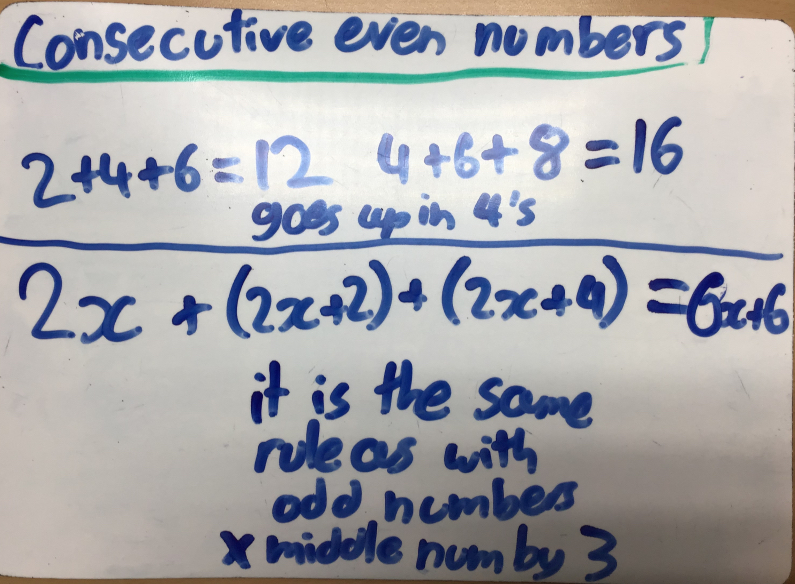 Consecutive even numbers
2+4+6=12 4+6+8=16
goes up in 4's
2x + (2x+2)+(2x+4) =6x+6
it is the same
rule as with
odd numbers
x middle num by 3